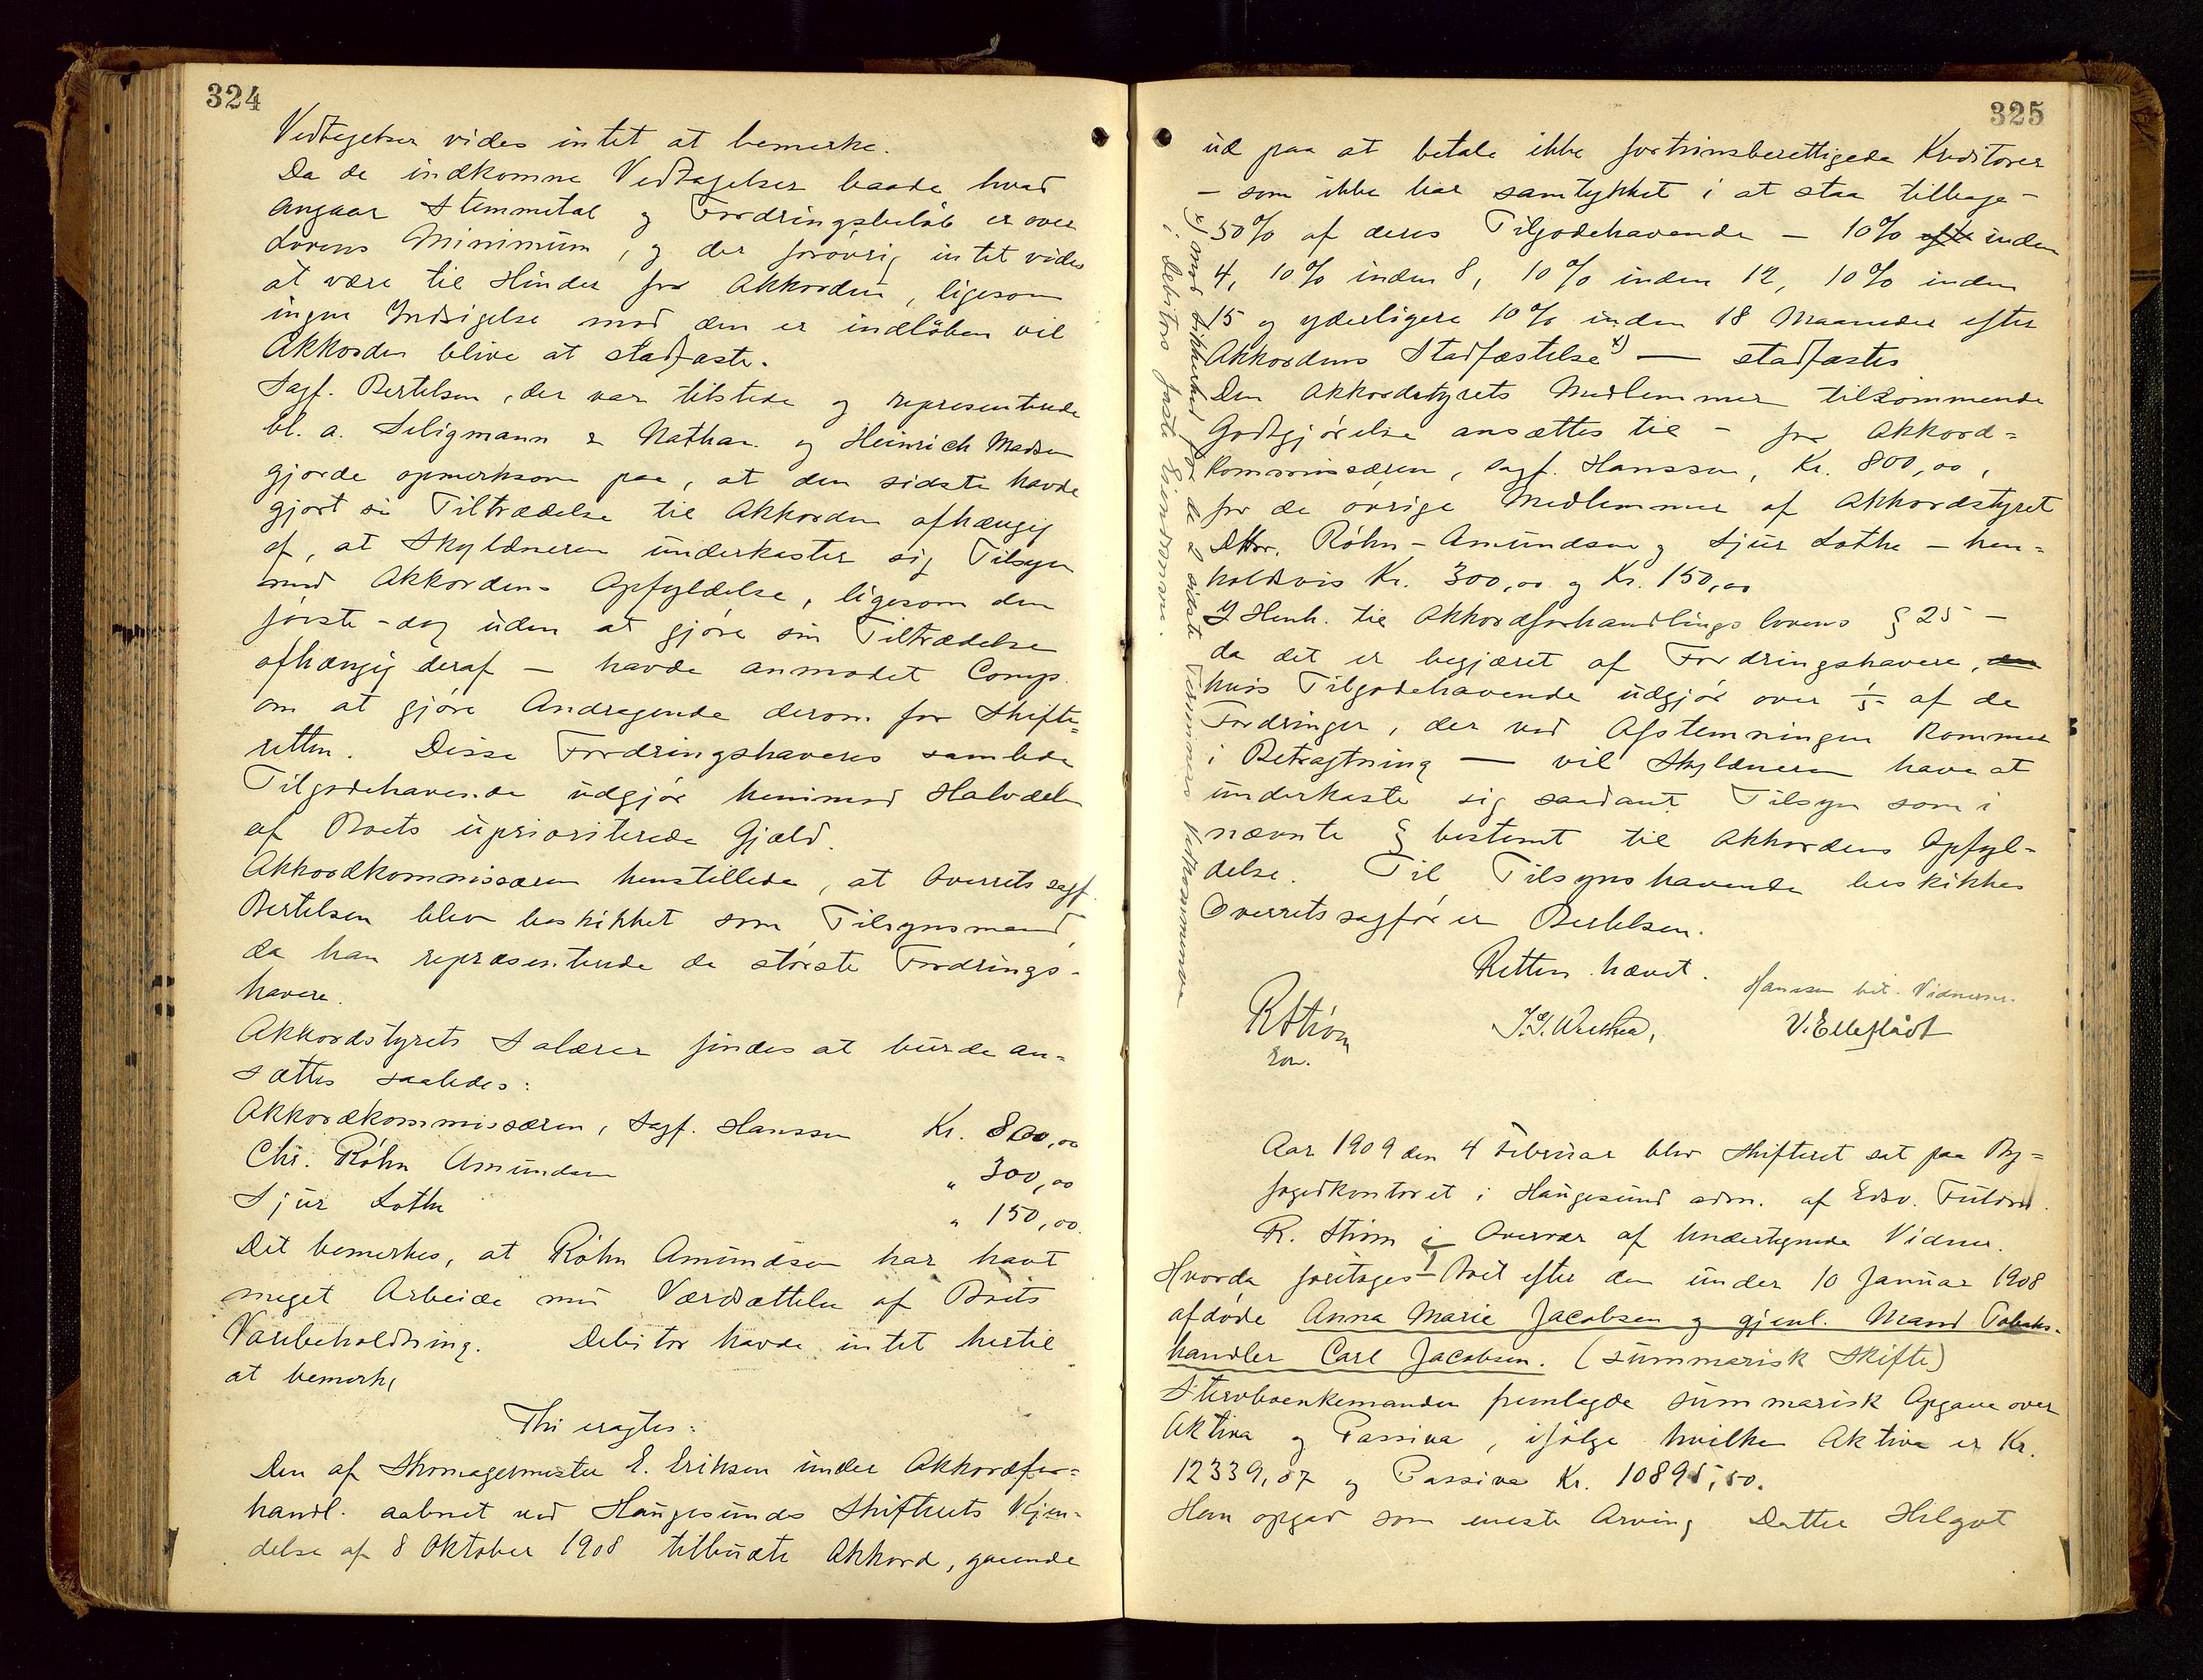 324
Vedtagelser vides intet at bemerke.
Da de indkomne Vedtagelser baade hvad
angaar Stemmetal og Fordringsbeløb er over
Lovens Minimum, og der forøvrig intet vides
at være til Hinder for Akkorden, ligesom
ingen Indsigelse mod den er indløben vil
Akkorden blive at stadfæste.
Sagf. Bertelsen, der var tilstede og representerede
bl. a. Seligmann & Nathan og Heinrich Madsen
gjorde opmerksom paa, at den sidste havde
gjort sin Tiltrædelse til Akkorden afhængig
af, at Skyldneren underkaster sig Tilsyn
med Akkordens Opfyldelse, ligesom den
første - dog uden at gjøre sin Tiltrædelse
afhængig deraf - havde anmodet Comp.
om at gjøre Andragende derom for Skifte=
retten. Disse Fordringshaveres samlede
Tilgodehavende udgjør henimod Halvdelen
af Boets uprioriterede Gjæld.
Akkordkommissæren henstillede, at Overrets sagf.
Bertelsen blev beskikket som Tilsynsmand,
da han repræsenterede de største Fordrings-
havere.
Akkordstyrets Salærer findes at burde an=
sættes saaledes:
Akkordkommissæren, Sagf. Hanssen Kr. 800,00
Chr. Røhn Amundsen " 300,00
Sjur Lothe " 150,00.
Det bemerkes, at Røhn Amundsen har havt
meget Arbeide med Værdsættelse af Boets
Varebeholdning. Debitor havde intet hertil
at bemerke,
Thi eragtes:
Den af Skomagermester E. Eriksen under Akkordfor=
handl. aabnet ved Haugesunds Skifterets Kjen-
delse af 8 Oktober 1908 tilbudte Akkord, gaaende
325
ud paa at betale ikke fortrinsberettigede Kreditorer
- som ikke har samtykket i at staa tilbage -
50% af deres Tilgodehavende - 10% efter inden
4, 10% inden 8, 10% inden 12, 10% inden
15 og yderligere 10% inden 18 Maaneder efter
Akkordens Stadfæstelse x) - stadfæstes
Den Akkordstyrets Medlemmer tilkommende
Godtgjørelse ansættes til - for Akkord=
kommissæren, sagf. Hanssen, Kr. 800,00,
for de øvrige Medlemmer af Akkordstyret
DHrr. Røhn-Amundsen og Sjur Lothe - hen=
holdsvis Kr. 300,00 og Kr. 150,00
I Henh. til Akkordforhandlingslovens § 25 -
da det er begjæret af Fordringshavere, den
hvis Tilgodehavende udgjør over 1/5 af de
Fordringer, der ved Afstemningen kommer
i Betragtning - vil Skyldneren have at
underkaste sig saadant Tilsyn som i
nævnte § bestemt til Akkordens Opfyl-
delse. Til Tilsynshavende beskikkes
Overretssagfører Bertelsen.
x) mod Sikkerhed for de 2 sidste Terminers Vedkommende
i Debitors faste Eiendomme.
Retten hævet.
Hanssen bet. Vidnerne.
R Strøm
V. Ellefladt
Aar 1909 den 4 Februar blev Skifteret sat paa By=
fogedkontoret i Haugesund adm. af Edsv. Fuldm.
R. Strøm i Overvær af Undertegnede Vidner.
Hvorda foretoges Boet efter den under 10 Januar 1908
afdøde Anna Marie Jacobsen og gjenl. Mand Tobaks-
handler Carl Jacobsen. (summarisk Skifte)
Stervboenkemanden fremlagde summarisk Opgave over
Aktiva og Passiva, ifølge hvilken Aktiva er Kr.
12339,07 og Passiva Kr. 10895,50.
Han opgav som eneste Arving Datter Helgot